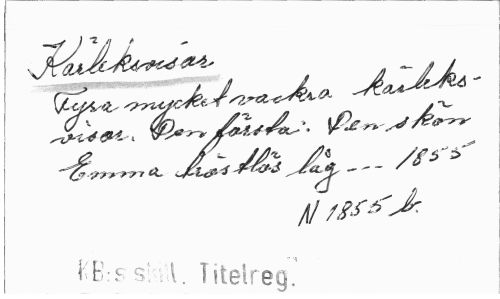 Kärleksvisor
Fyra mycket vackra kärleks-
visor. Den första: Den skön
Emma tröstlös låg --- 1855
N 1855 b.
KB:s skill. Titelreg.